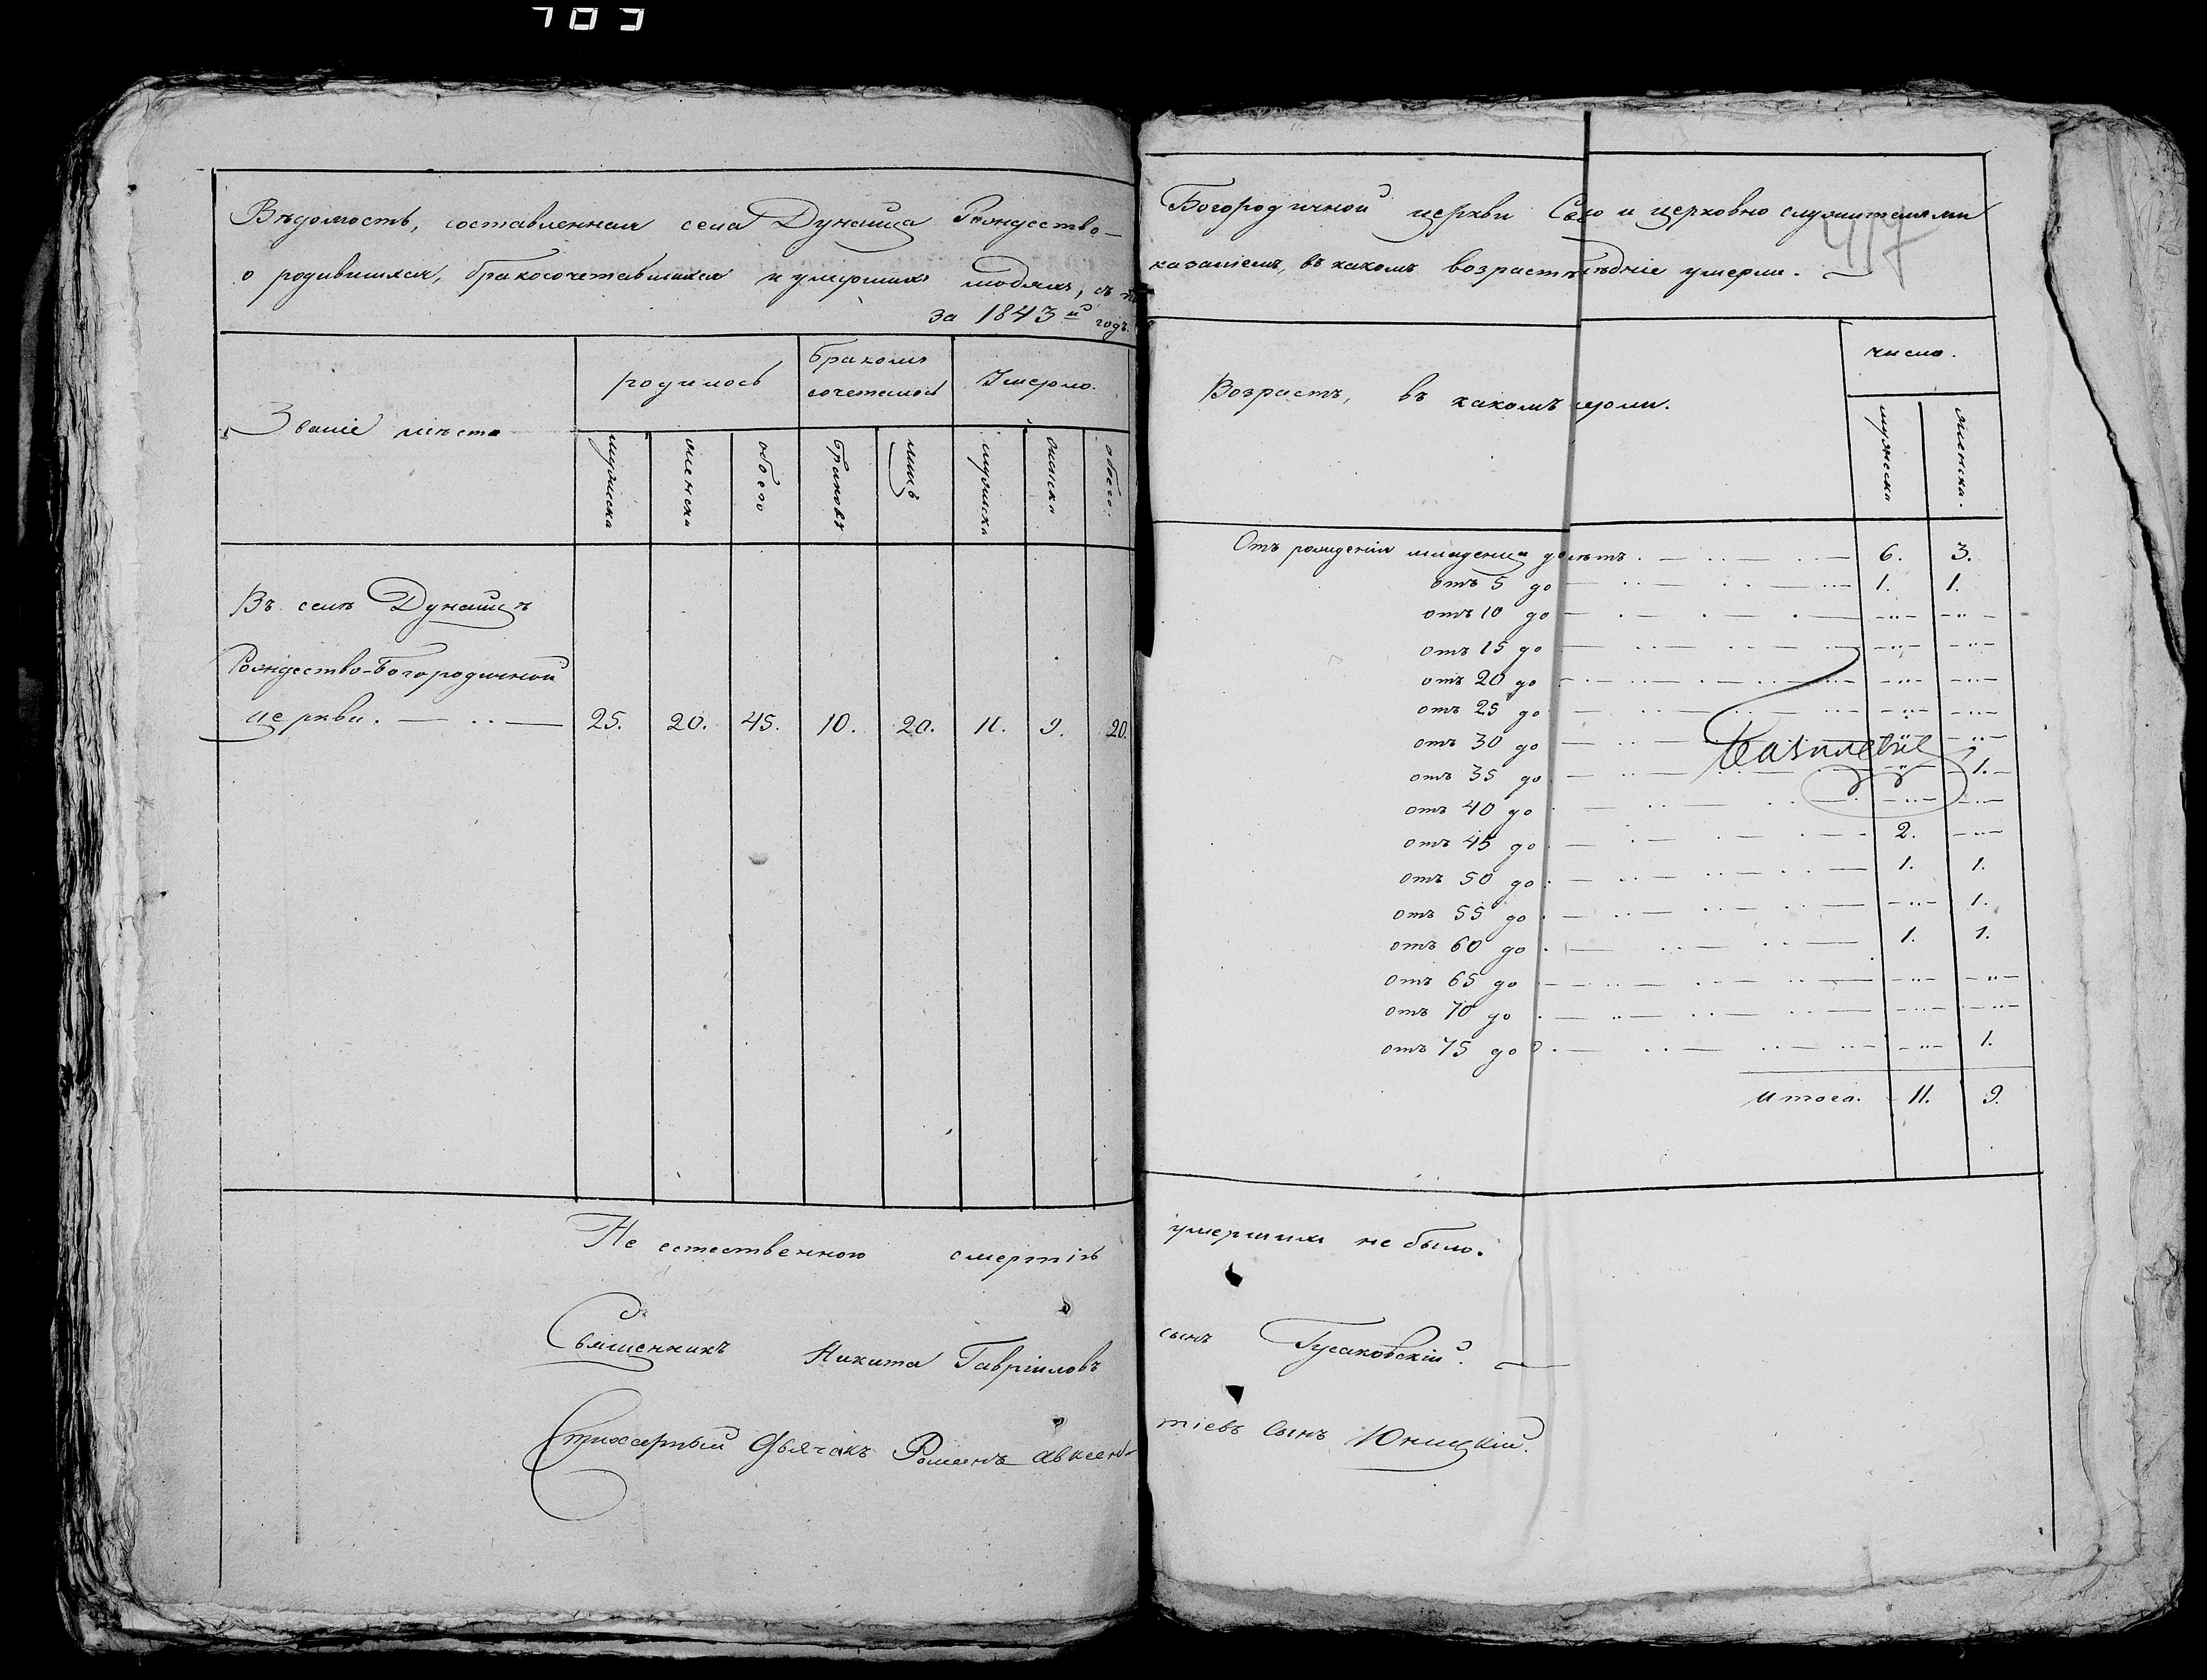 703
Вѣдомость, составленная села Дунайца Рождество-
о родившихся, бракосочетавшихся и умершихъ людяхъ, съ
за 1843й годъ.
Званіе мѣста
родилось
бракомъ сочеталось
Умерло.
мужеска
женска
обоего
браковъ
лицъ
мужеска
женска
обоего.
Въ селѣ Дунайцѣ
Рождество-Богородичной
церкви. 25. 20. 45. 10. 20. 11. 9. 20.
Не естественною смертію
Священникъ Никита Гавріиловъ
Стихарный Дьячокъ Романъ Авксен-
Богородичной церкви и церковно служителями
417
казаніемъ, въ какомъ возрастѣ умерли.
Возрастъ, въ какомъ
число.
мужеска
женска.
Отъ рожденія младенца до лѣтъ 6. 3.
отъ 5 до 1. 1.
отъ 10 до
отъ 15 до
отъ 20 до
отъ 25 до
отъ 30 до
отъ 35 до 1.
отъ 40 до
отъ 45 до 2.
отъ 50 до 1. 1.
отъ 55 до 1.
отъ 60 до 1. 1.
отъ 65 до
отъ 70 до
отъ 75 до 1.
Итого. 11. 9.
умершихъ не было.
сынъ Гусаковскій.
тіевъ Сынъ Юницкій.